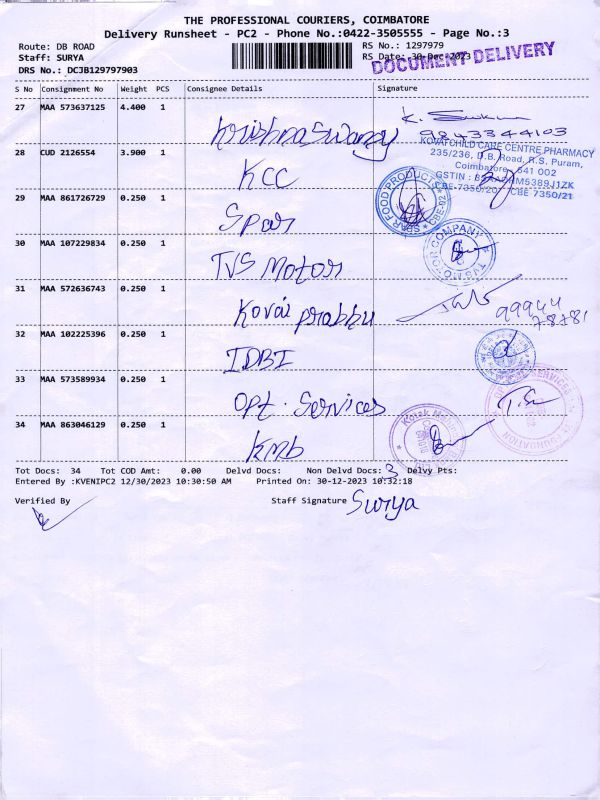 THE PROFESSIONAL COURIERS, COIMBATORE
Delivery Runsheet - PC2 - Phone No.:0422-3505555 - Page No.:3
Route: DB ROAD
RS No.: 1297979
Staff: SURYA
RS Date: 30-Dec-2023
DOCUMENT DELIVERY
DRS No.: DCJB129797903
S No Consignment No Weight PCS Consignee Details Signature
27 MAA 573637125 4.400 1
Krishnaswamy
9843344103
28 CUD 2126554 3.900 1
KCC
KOVAI CHILD CARE CENTRE PHARMACY
235/236, D.B. Road, R.S. Puram,
Coimbatore - 641 002
GSTIN :
CBE-7350/20 CBE 7350/21
29 MAA 861726729 0.250 1
Spar
SPAR FOOD PRODUCTS
30 MAA 107229834 0.250 1
TVS Motor
TVS MOTOR COMPANY
31 MAA 572636743 0.250 1
Kovai prabhu
99944
78781
32 MAA 102225396 0.250 1
IDBI
33 MAA 573589934 0.250 1
opt. Services
34 MAA 863046129 0.250 1
KMB
Kotak Mahindra
Tot Docs: 34 Tot COD Amt: 0.00 Delvd Docs: Non Delvd Docs: 3 Delvy Pts:
Entered By :KVENIPC2 12/30/2023 10:30:50 AM Printed On: 30-12-2023 10:32:18
Verified By
Staff Signature Surya